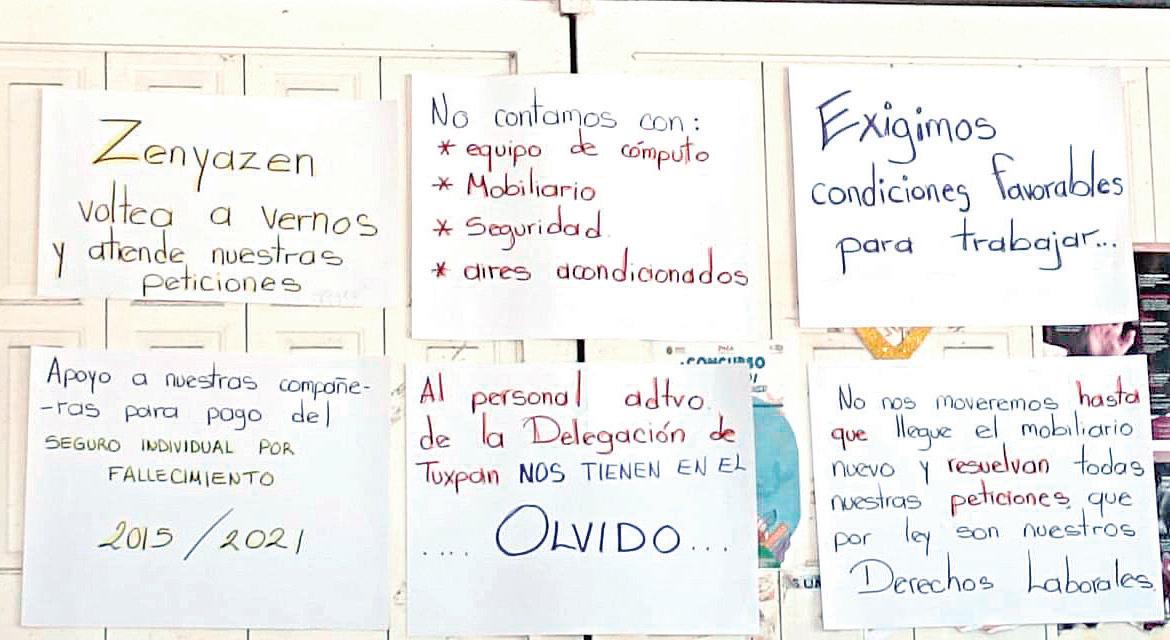 Zenyazen
voltea a vernos
y atiende nuestras
peticiones
No contamos con:
* equipo de cómputo
* Mobiliario
* Seguridad
* aires acondicionados
Exigimos
condiciones favorables
para trabajar...
Apoyo a nuestras compañe-
-ras para pago del
SEGURO INDIVIDUAL POR
FALLECIMIENTO
2015/2021
Al personal adtvo.
de la Delegación de
Tuxpan NOS TIENEN EN EL
.... OLVIDO...
No nos moveremos hasta
que llegue el mobiliario
nuevo y resuelvan todas
nuestras peticiones, que
por ley son nuestros
Derechos Laborales.